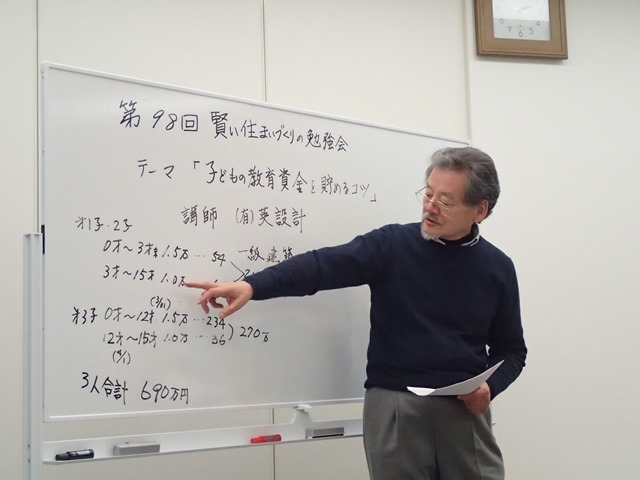 第98回 賢い住まいづくりの勉強会
テーマ 「子どもの教育資金を貯めるコツ」
講師 (有)英設計
一級建築
第1子・2子
0才〜3才 1.5万 … 54
3才〜15才 1.0万
(3/11)
第3子 0才〜12才 1.5万 … 234
12才〜15才 1.0万 … 36
270万
3人合計 690万円